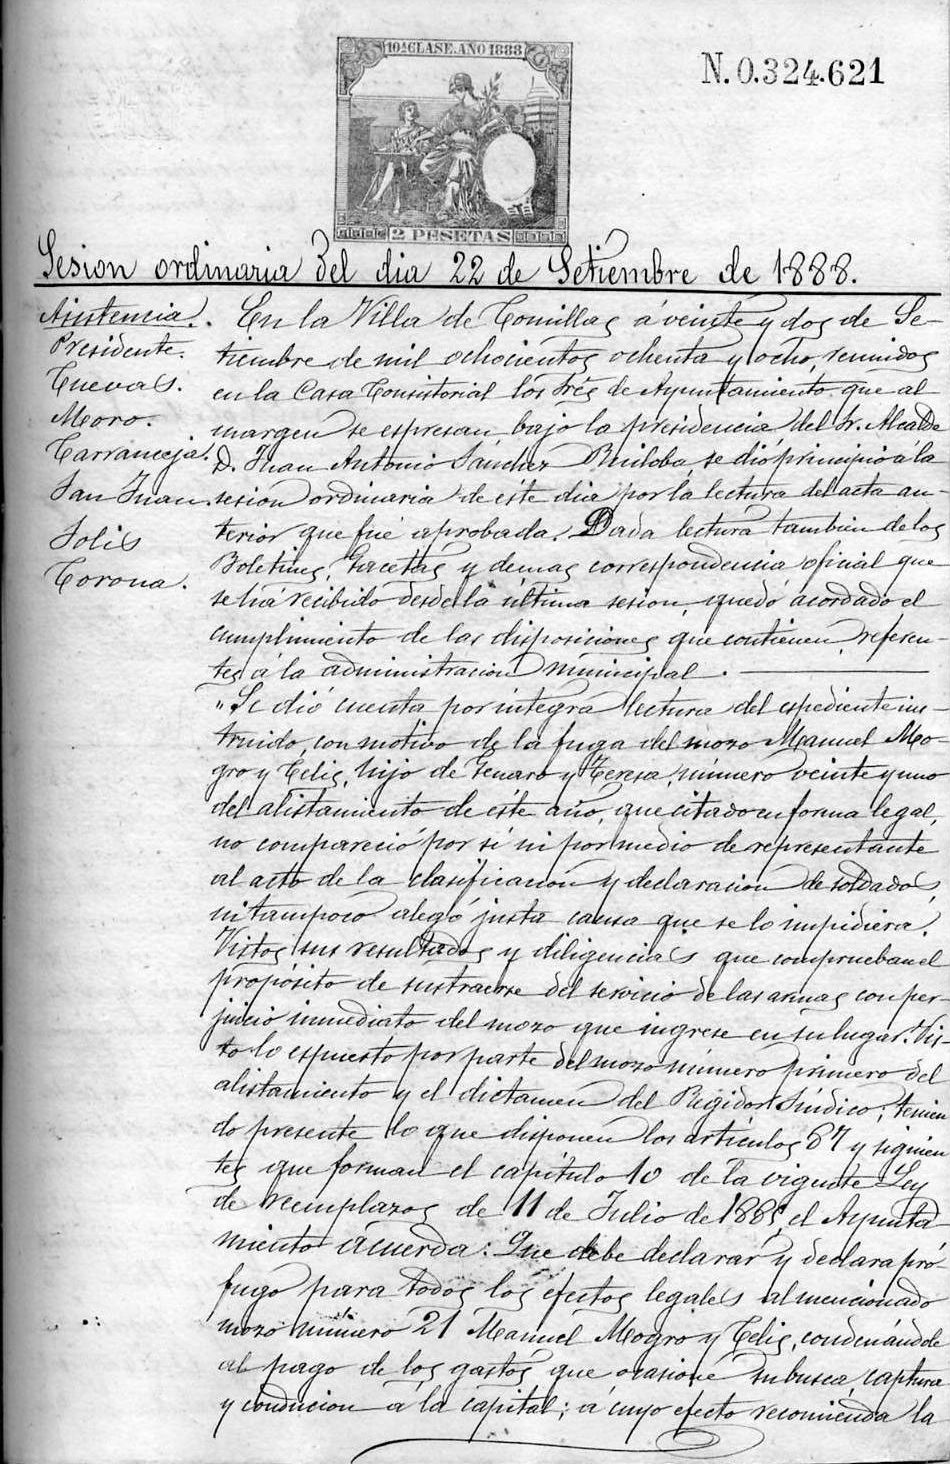 10ª CLASE. AÑO 1888
N. 0.324.621
2 PESETAS
Sesion ordinaria del dia 22 de Setiembre de 1888.
Asistencia.
Presidente.
Cuevas.
Moro.
Carranceja.
San Juan.
Solis
Corona.
En la Villa de Comillas á veinte y dos de Se-
tiembre de mil ochocientos ochenta y ocho, reunidos
en la Casa Consistorial los Sres de Ayuntamiento que al
margen se espresan, bajo la presidencia del Sr. Alcalde
D. Juan Antonio Sanchez Ruiloba, se dió principio á la
sesion ordinaria de este dia por la lectura del acta an-
terior que fué aprobada. Dada lectura tambien de los
Boletines, Gacetas y demas correspondencia oficial que
se há recibido desde la última sesion, quedó acordado el
cumplimiento de las disposiciones que contienen, referen-
tes á la administracion municipal.
"Se dió cuenta por integra lectura del espediente ins-
truido, con motivo de la fuga del mozo Manuel Mo-
gro y Celis, hijo de Genaro y Teresa, número veinte y uno
del alistamiento de este año, que citado en forma legal,
no compareció por sí ni por medio de representante
al acto de la clasificacion y declaracion de soldados,
ni tampoco alegó justa causa que se lo impidiera.
Vistos sus resultados y diligencias que comprueban el
propósito de sustraerse del servicio de las armas con per-
juicio inmediato del mozo que ingrese en su lugar. Vis-
to lo espuesto por parte del mozo número primero del
alistamiento y el dictamen del Regidor Sindico; tenien
do presente lo que disponen los artículos 87 y siguien
tes que forman el capítulo 10 de la vigente Ley
de reemplazos de 11 de Julio de 1885, el Ayunta
miento acuerda: Que debe declarar y declara pró-
fugo para todos los efectos legales al mencionado
mozo número 21 Manuel Mogro y Celis, condenándole
al pago de los gastos que ocasione su busca, captura
y conducion á la capital; á cuyo efecto recomienda la